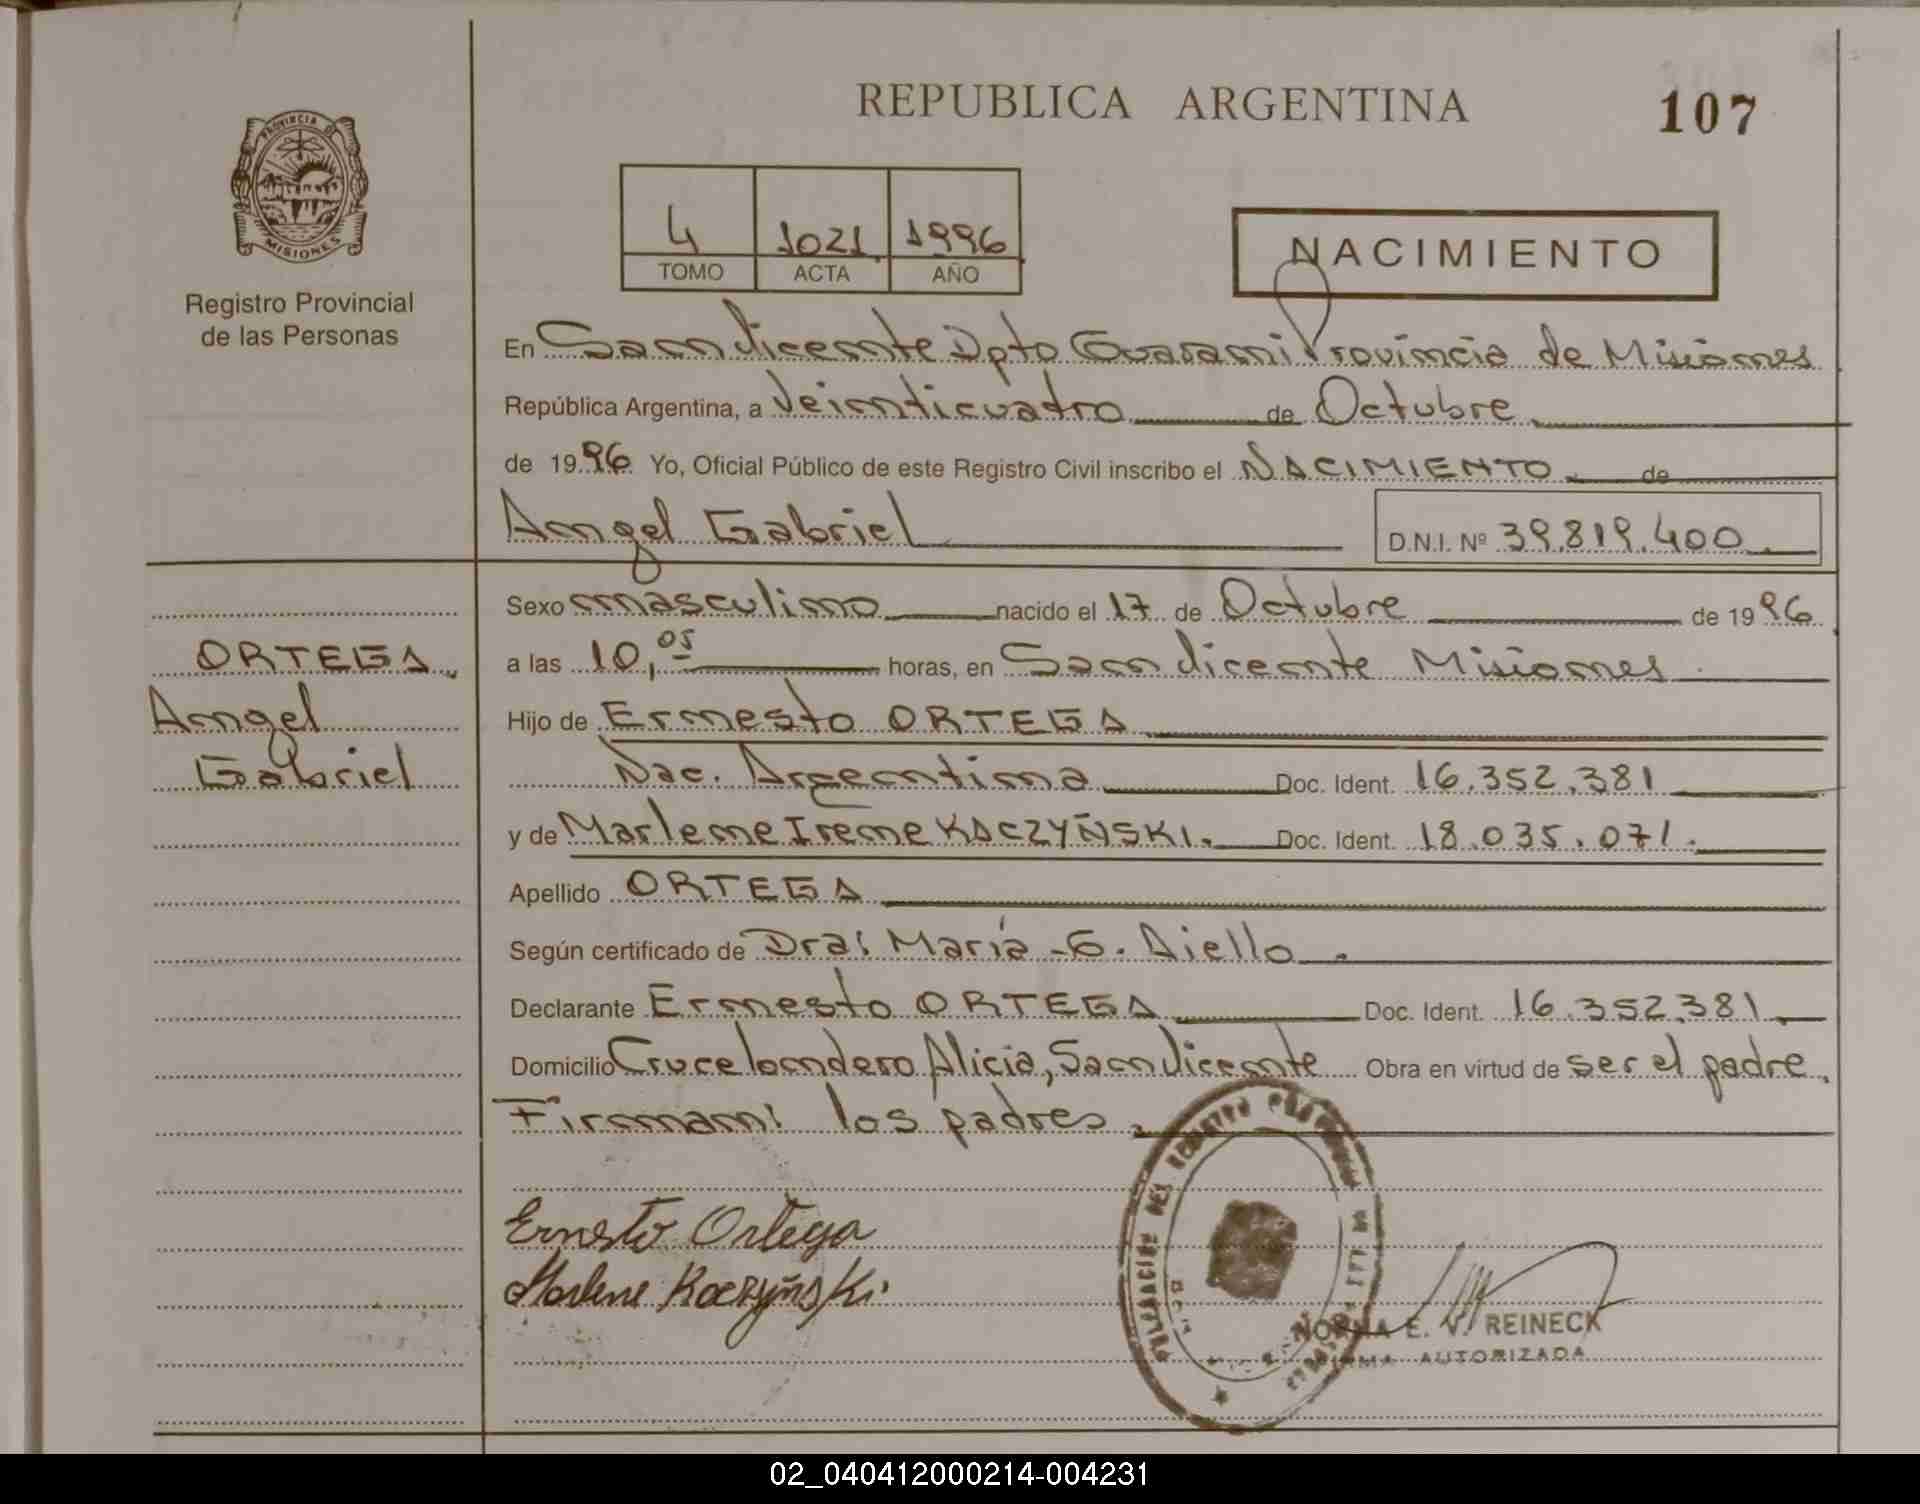 REPUBLICA ARGENTINA
107
PROVINCIA DE
MISIONES
Registro Provincial
de las Personas
4 1021 1996
TOMO ACTA AÑO
NACIMIENTO
En San Vicente Dpto Guarani Provincia de Misiones
República Argentina, a Veinticuatro de Octubre
de 1996 Yo, Oficial Público de este Registro Civil inscribo el NACIMIENTO de
Angel Gabriel D.N.I. Nº 39.819.400
Sexo masculino nacido el 17 de Octubre de 1996
a las 10,05 horas, en San Vicente Misiones
Hijo de Ernesto ORTEGA
Nac. Argentina Doc. Ident. 16.352.381
y de Marlene Irene KACZYÑSKI. Doc. Ident. 18.035.071.
Apellido ORTEGA
Según certificado de Dra: María G. Aiello
Declarante Ernesto ORTEGA Doc. Ident. 16.352.381
Domicilio Cruce Londero Alicia, San Vicente Obra en virtud de ser el padre.
Firman: los padres.
ORTEGA,
Angel
Gabriel
Ernesto Ortega
Marlene Kaczyñski
DELEGACION DEL REGISTRO PROVINCIAL DE LAS PERSONAS
NORMA E. V. REINECK
FIRMA AUTORIZADA
02_040412000214-004231